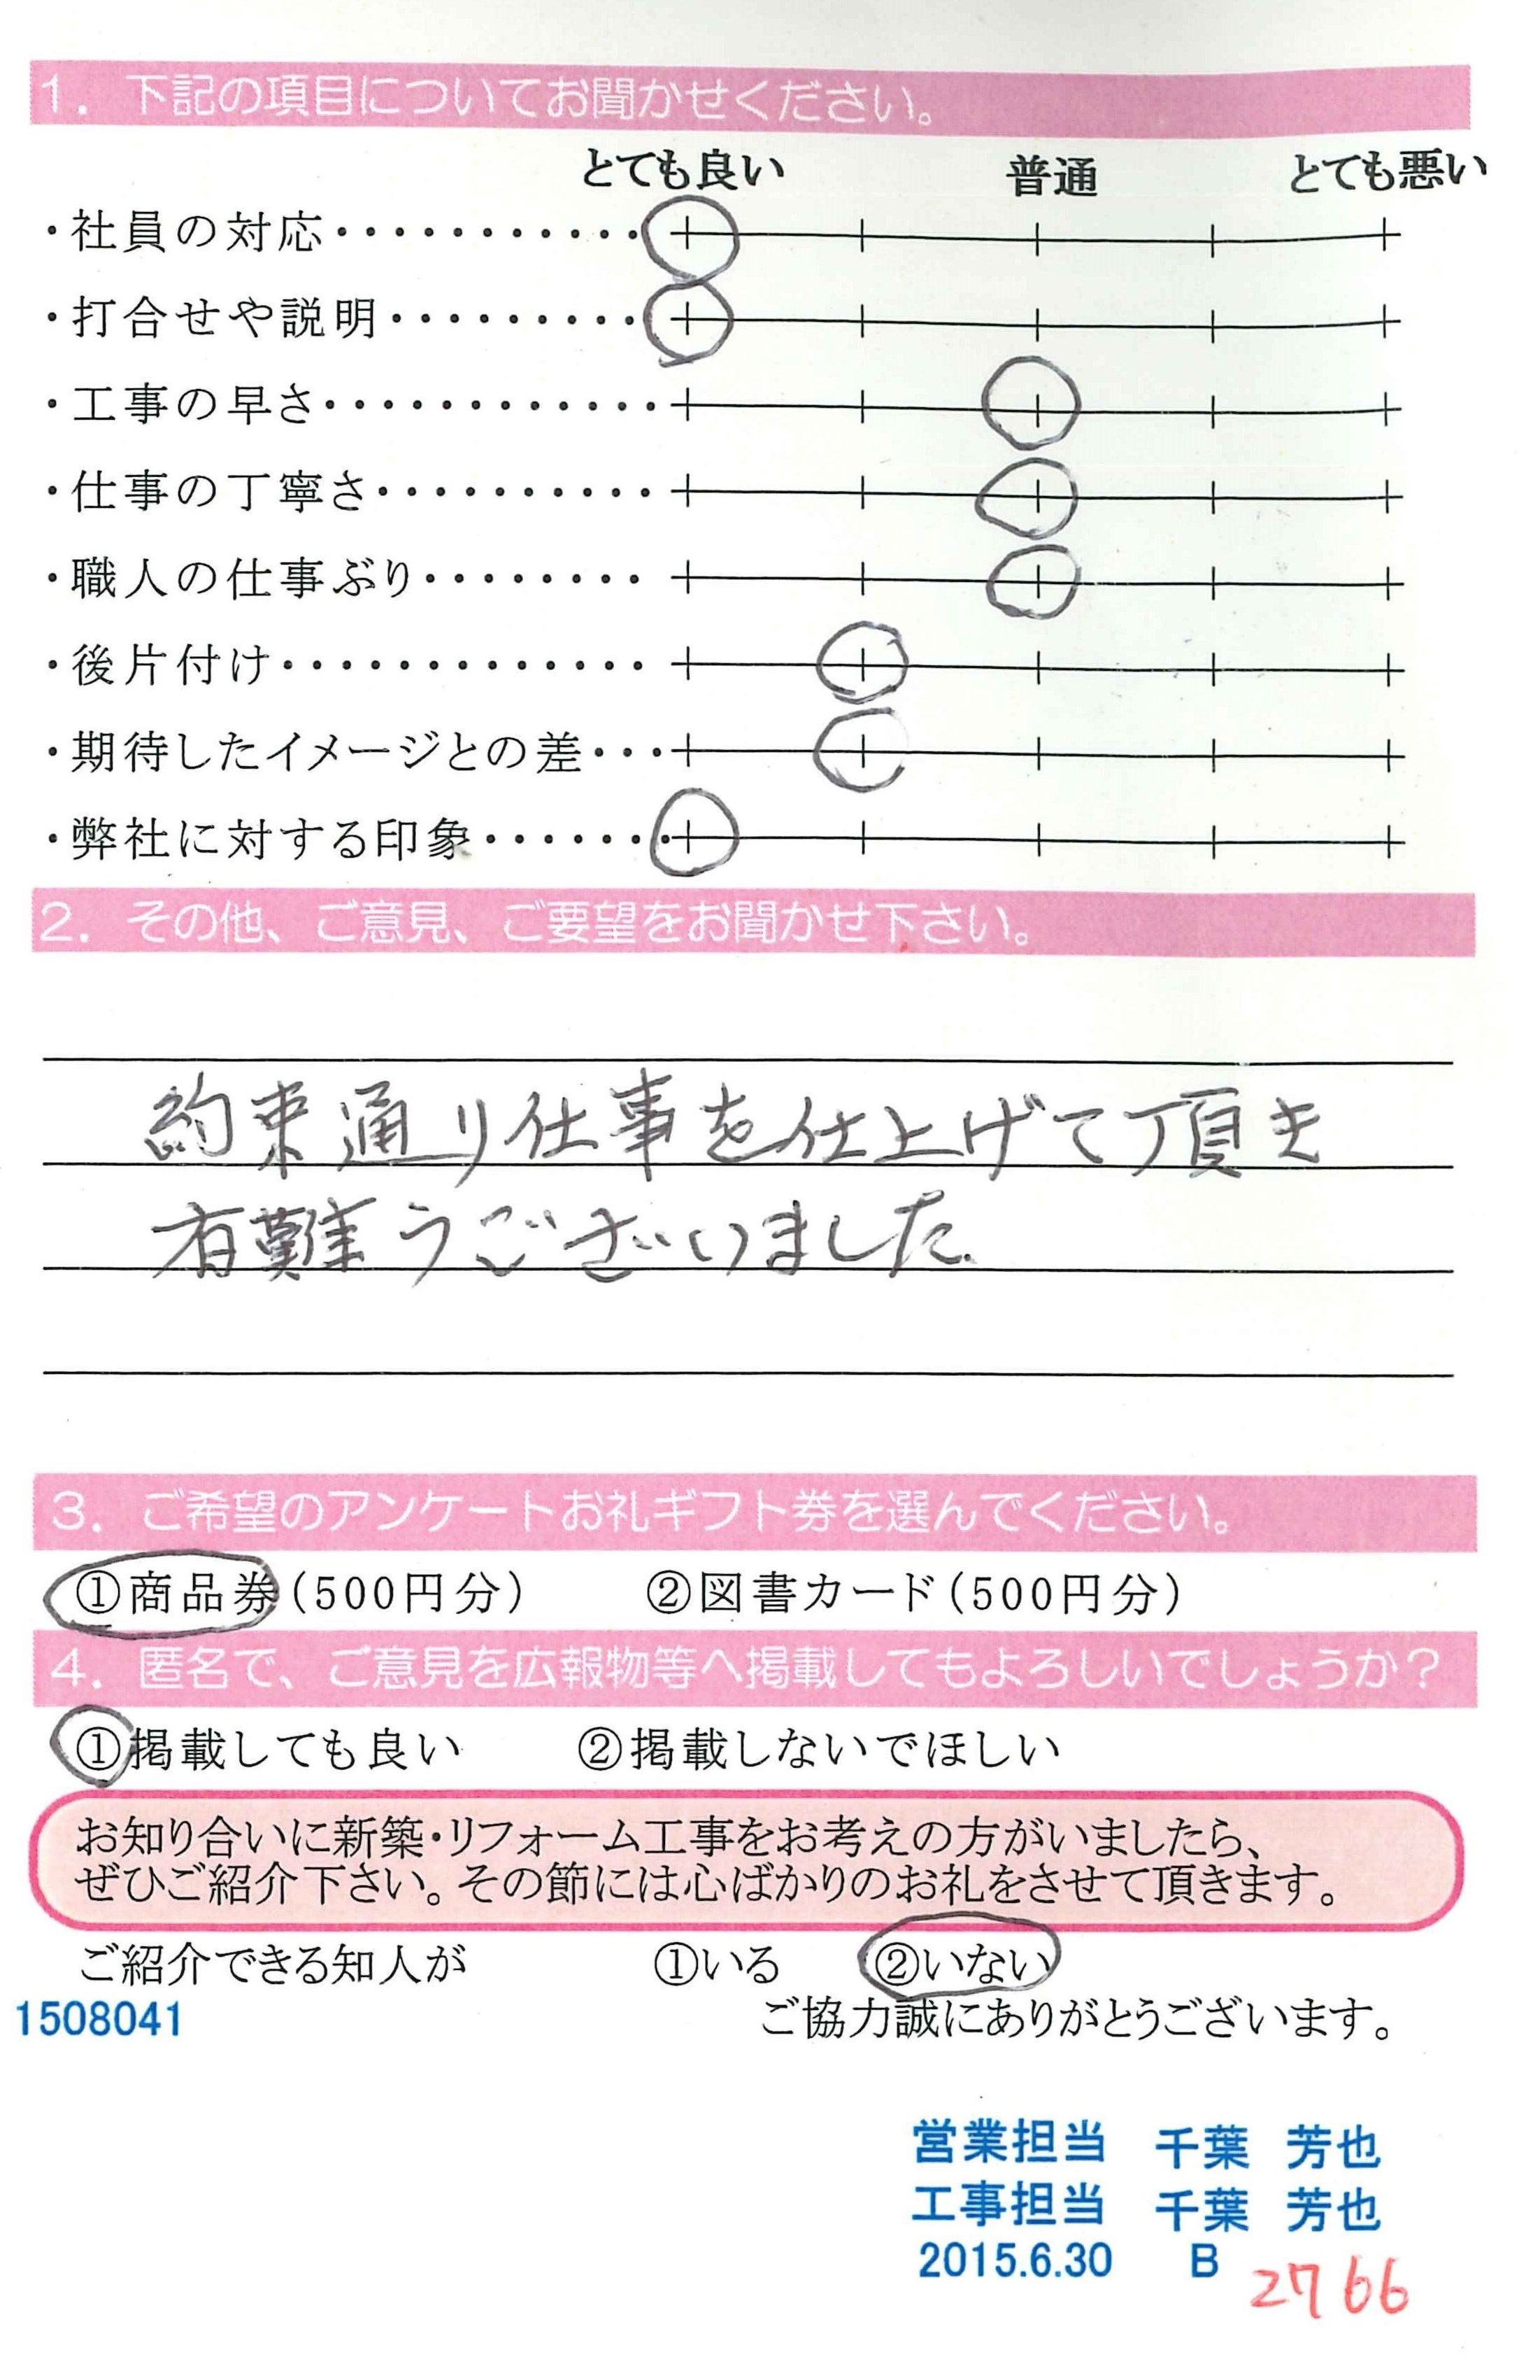 1. 下記の項目についてお聞かせください。
とても良い 普通 とても悪い
・社員の対応・・・・・・・・・・・
・打合せや説明・・・・・・・・・
・工事の早さ・・・・・・・・・・・・
・仕事の丁寧さ・・・・・・・・・・
・職人の仕事ぶり・・・・・・・・
・後片付け・・・・・・・・・・・・・
・期待したイメージとの差・・・
・弊社に対する印象・・・・・・・
2. その他、ご意見、ご要望をお聞かせ下さい。
約束通り仕事を仕上げて頂き
有難うございました
3. ご希望のアンケートお礼ギフト券を選んでください。
①商品券(500円分) ②図書カード(500円分)
4. 匿名で、ご意見を広報物等へ掲載してもよろしいでしょうか?
①掲載しても良い ②掲載しないでほしい
お知り合いに新築・リフォーム工事をお考えの方がいましたら、
ぜひご紹介下さい。その節には心ばかりのお礼をさせて頂きます。
ご紹介できる知人が ①いる ②いない
1508041 ご協力誠にありがとうございます。
営業担当 千葉 芳也
工事担当 千葉 芳也
2015.6.30 B 2766